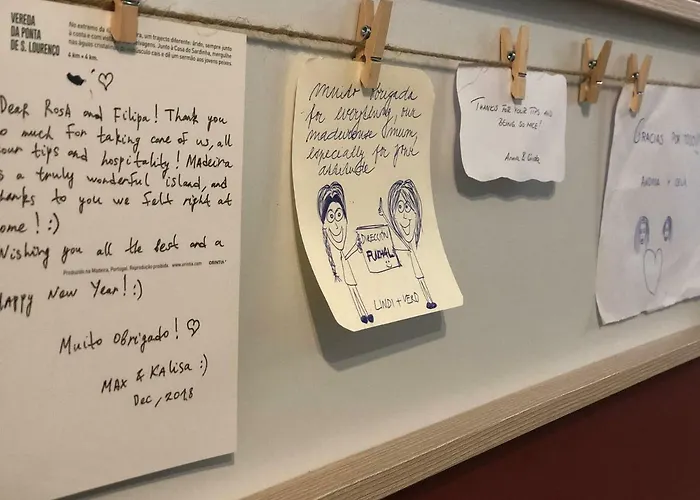 VEREDA
DA PONTA
DE S. LOURENÇO
No extremo da
um trajecto diferente: árido, sempre junto
à costa e com
selvagens. Junto à Casa do Sardinha, mergulhe
nas águas cristalinas
cais e dê um sermão aos jovens peixes.
4 km + 4 km.
Dear Rosa and Filipa! Thank you
so much for taking care of us, all
your tips and hospitality! MAdeira
is a truly wonderful island, and
thanks to you we felt right at
home! :)
Wishing you all the best and a
Produzido na Madeira, Portugal. Reprodução proibida. www.orintia.com ORINTIA
HAPPY New Year! :)
Muito obrigado! ♡
MAX & KAlisa :)
Dec, 2018
Muito obrigada
for everything, our
madeirense mum,
especially for your
DIRECCIÓN
FUNCHAL
LINDI + VERO
THANKS FOR YOUR TIPS AND
BEING SO NICE!
GRACIAS POR TODO